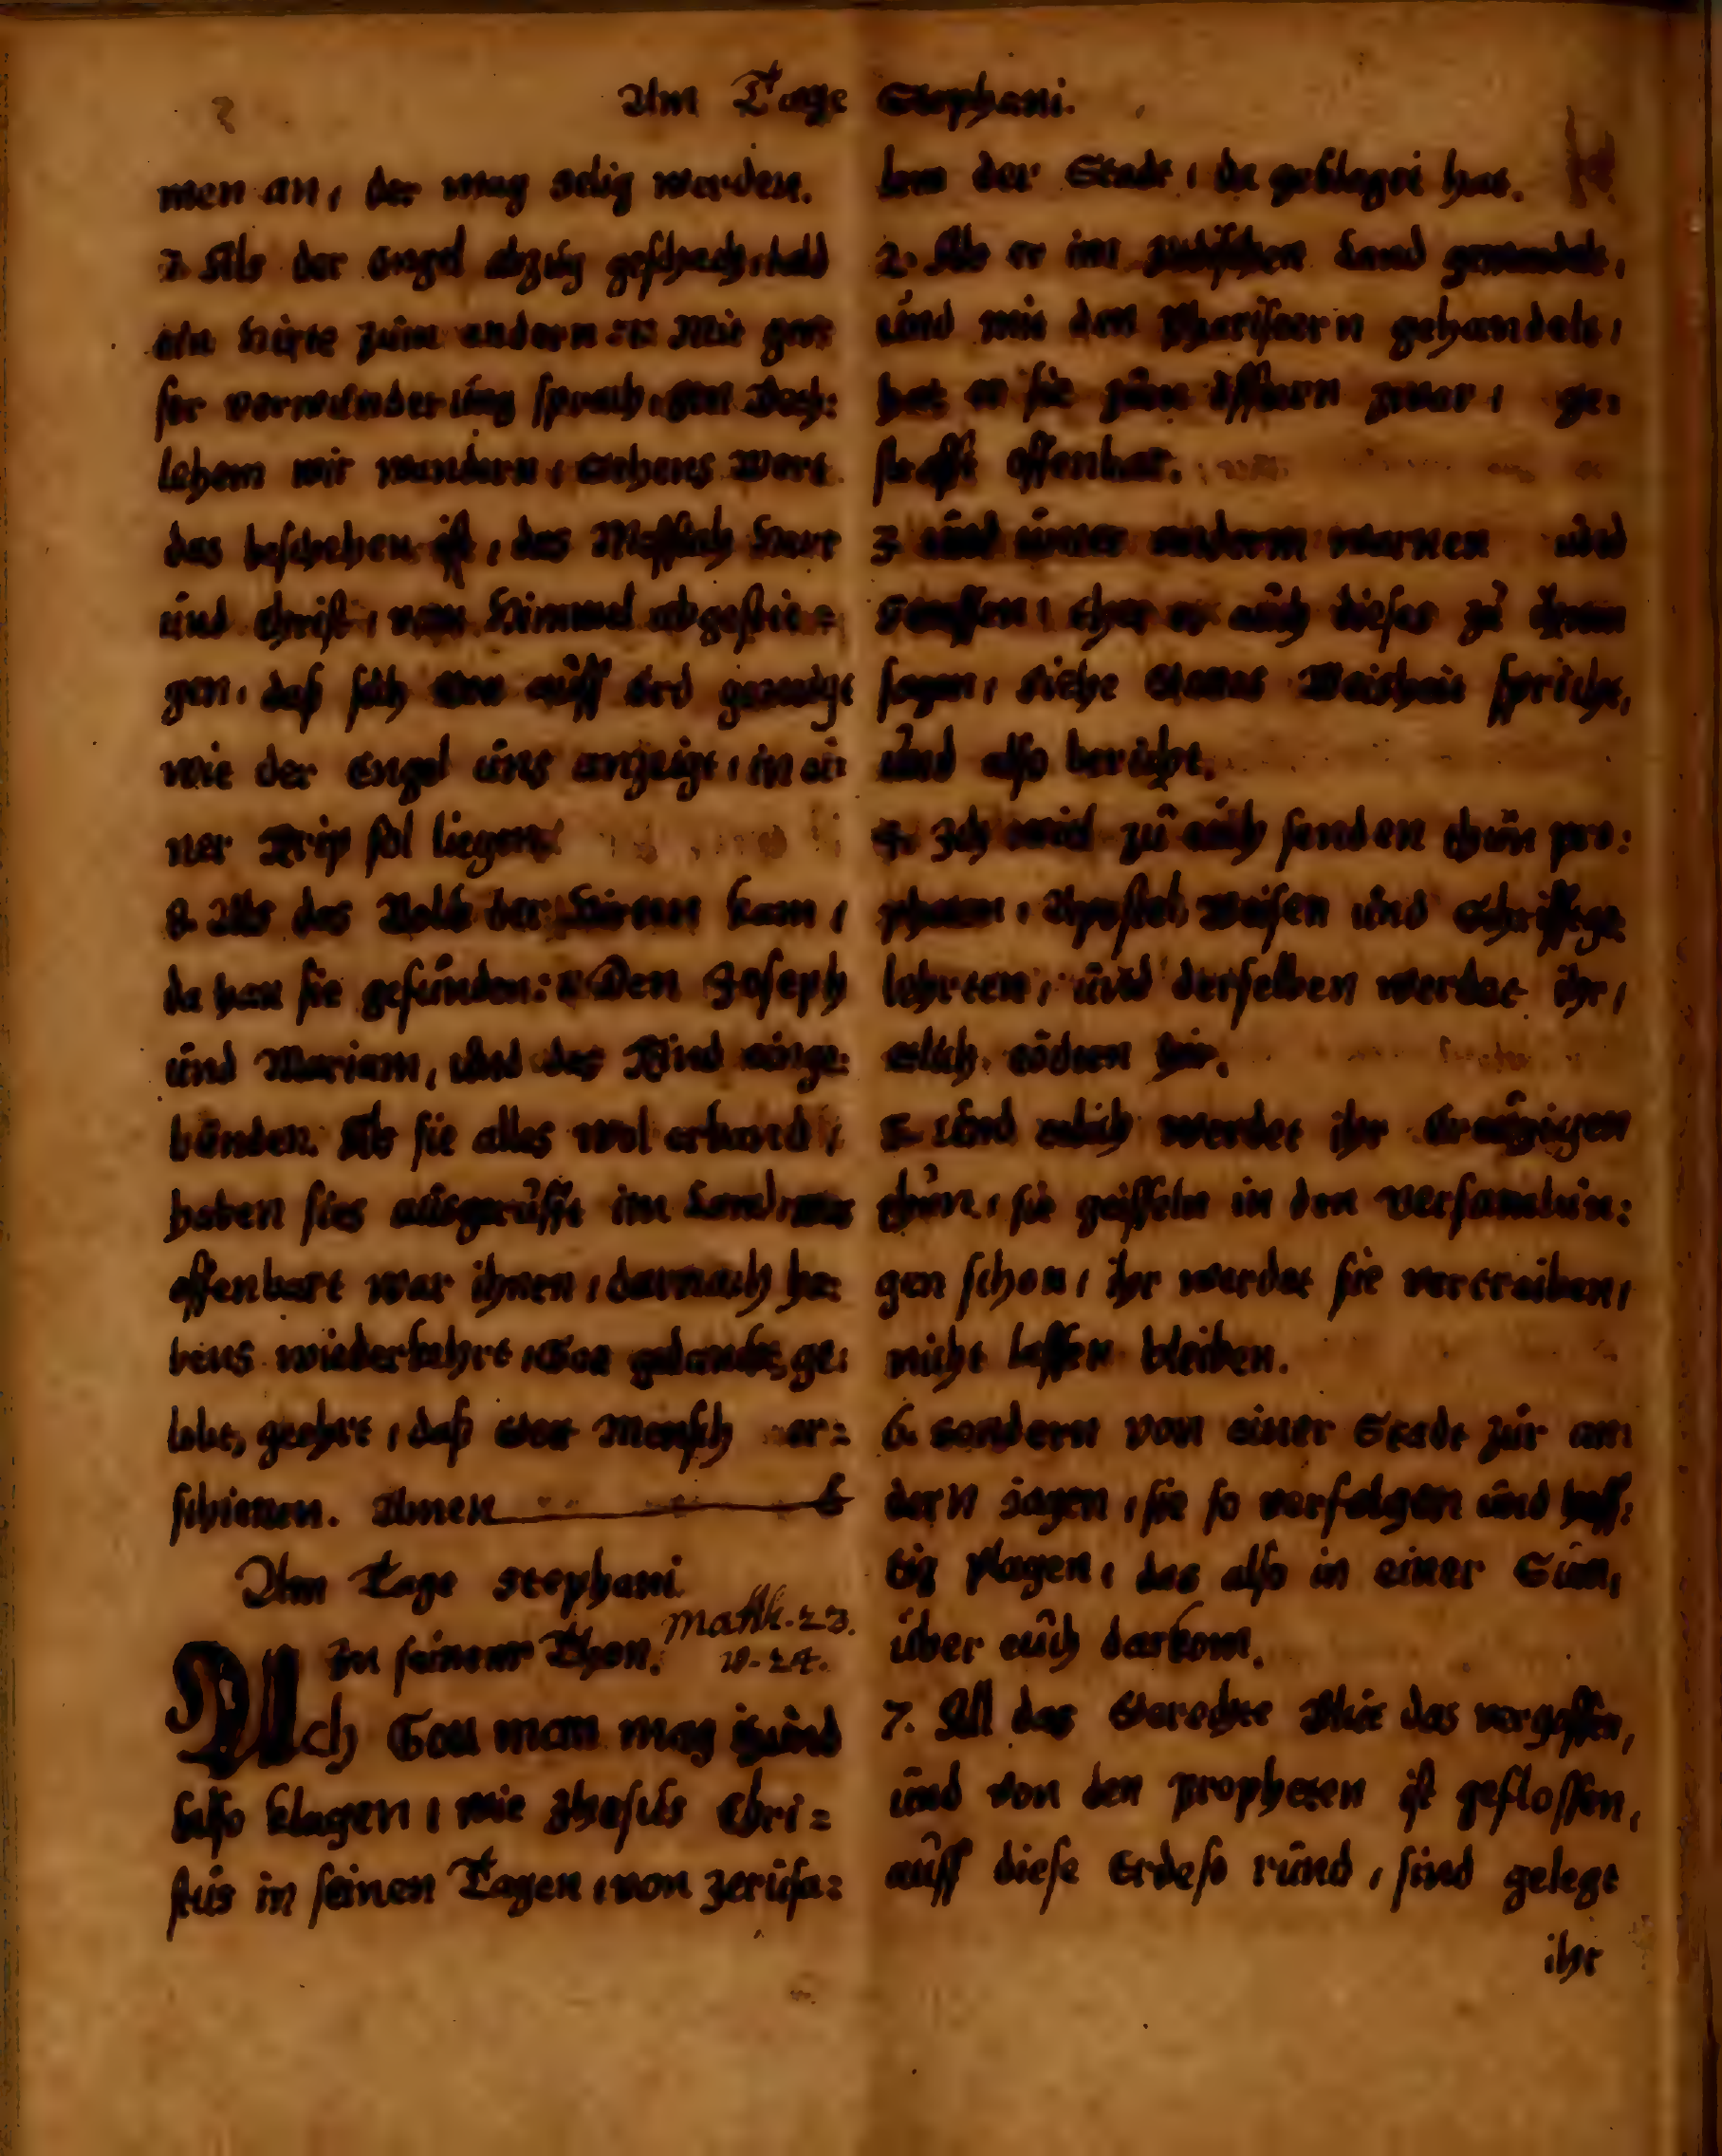 Am Tage Stephani.
men an, der mag selig werden.
7. Als der Engel abzug geschach, bald
ein Hirte zum andern :||: Mit gros
ser verwunderung sprach, gen Beth:
lehem wir wandern, sehens Wort
das beschehen ist, das Messiah Herr
und Christ, vom Himmel abgestie=
gen, daß sich Gott auff Erd geneigt
wie der Engel uns anzeigt, in ei
ner Krip sol liegen.
8. Als das Volck der Hirten kam,
da han sie gefunden: :||: Den Joseph
und Mariam, und das Kind einge:
bunden. Als sie alles wol erkand,
haben sies ausgerufft im Land, was
offenbart war ihnen, darnach ha:
bens wiederkehrt, Gott gedanckt, ge:
lobt, geehrt, daß Gott Mensch er=
schienen. Amen
Am Tage Stephani.
In seinem Thon. Matth. 23.
v. 24.
Ach Gott man mag itzund
also klagen, wie Jhesus Chri=
stus in seinen Tagen, von Jerusa=
lem der Stadt, da geklaget hat.
2. Als er im Jüdischen Land gewandelt,
und mit den Phariseern gehandelt,
hat er sie zum öfftern zwar, ge:
strafft offenbar.
3 und unter anderm warnen und
straffen, thet er auch dieses zu ihnen
sagen, siehe Gottes Weisheit spricht,
und also bericht.
4. Ich wiel zu euch senden thun pro:
pheten, Apostel, Weisen und Schrifftge
lehrten, und derselben werdet ihr,
etlich tödten hir.
5. und etlich werdet ihr Creutzigen
thun, sie geisseln in den versamlun:
gen schon, ihr werdet sie vertreiben,
nicht lassen bleiben.
6. sondern von einer Stadt zur an
dern jagen, sie so verfolgen und heff:
tig plagen, das also in einer Sum,
über euch darkom.
7. All das Gerechte Blut das vergossen,
und von den propheten ist geflossen,
auff diese Erde so rund, sind gelegt
ihr